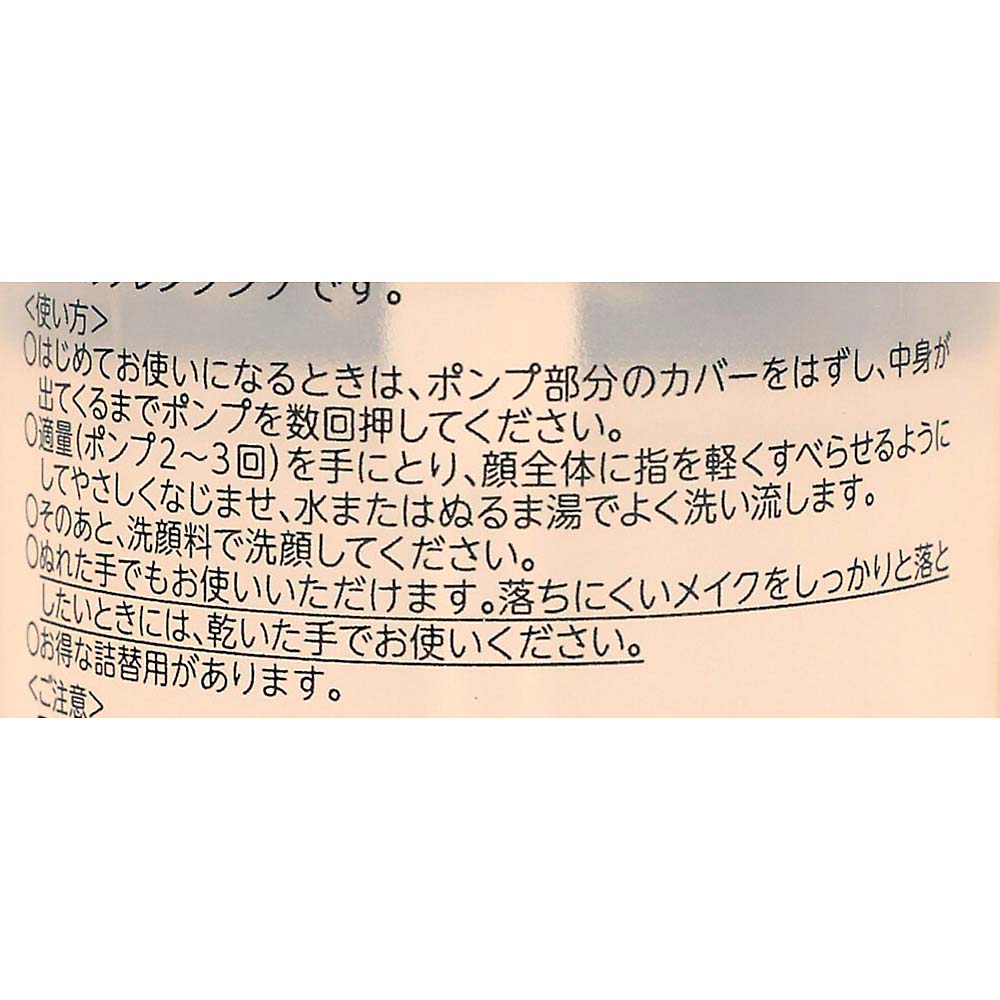 です。
<使い方>
○はじめてお使いになるときは、ポンプ部分のカバーをはずし、中身が
出てくるまでポンプを数回押してください。
○適量(ポンプ2～3回)を手にとり、顔全体に指を軽くすべらせるように
してやさしくなじませ、水またはぬるま湯でよく洗い流します。
○そのあと、洗顔料で洗顔してください。
○ぬれた手でもお使いいただけます。落ちにくいメイクをしっかりと落と
したいときには、乾いた手でお使いください。
○お得な詰替用があります。
<ご注意>